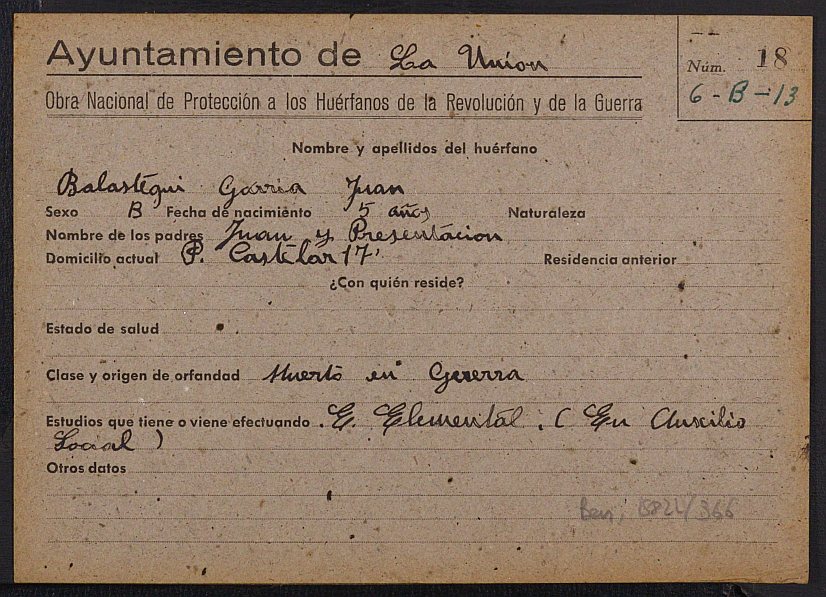 Ayuntamiento de La Union
Núm. 18
6-B-13
Obra Nacional de Protección a los Huérfanos de la Revolución y de la Guerra
Nombre y apellidos del huérfano
Balastegui Garria Juan
Sexo B Fecha de nacimiento 5 años Naturaleza
Nombre de los padres Juan y Presentacion
Domicilio actual P. Castelar 17 Residencia anterior
¿Con quién reside?
Estado de salud
Clase y origen de orfandad Muerto en Guerra
Estudios que tiene o viene efectuando E. Elemental. (En Auxilio
Social)
Otros datos
/366